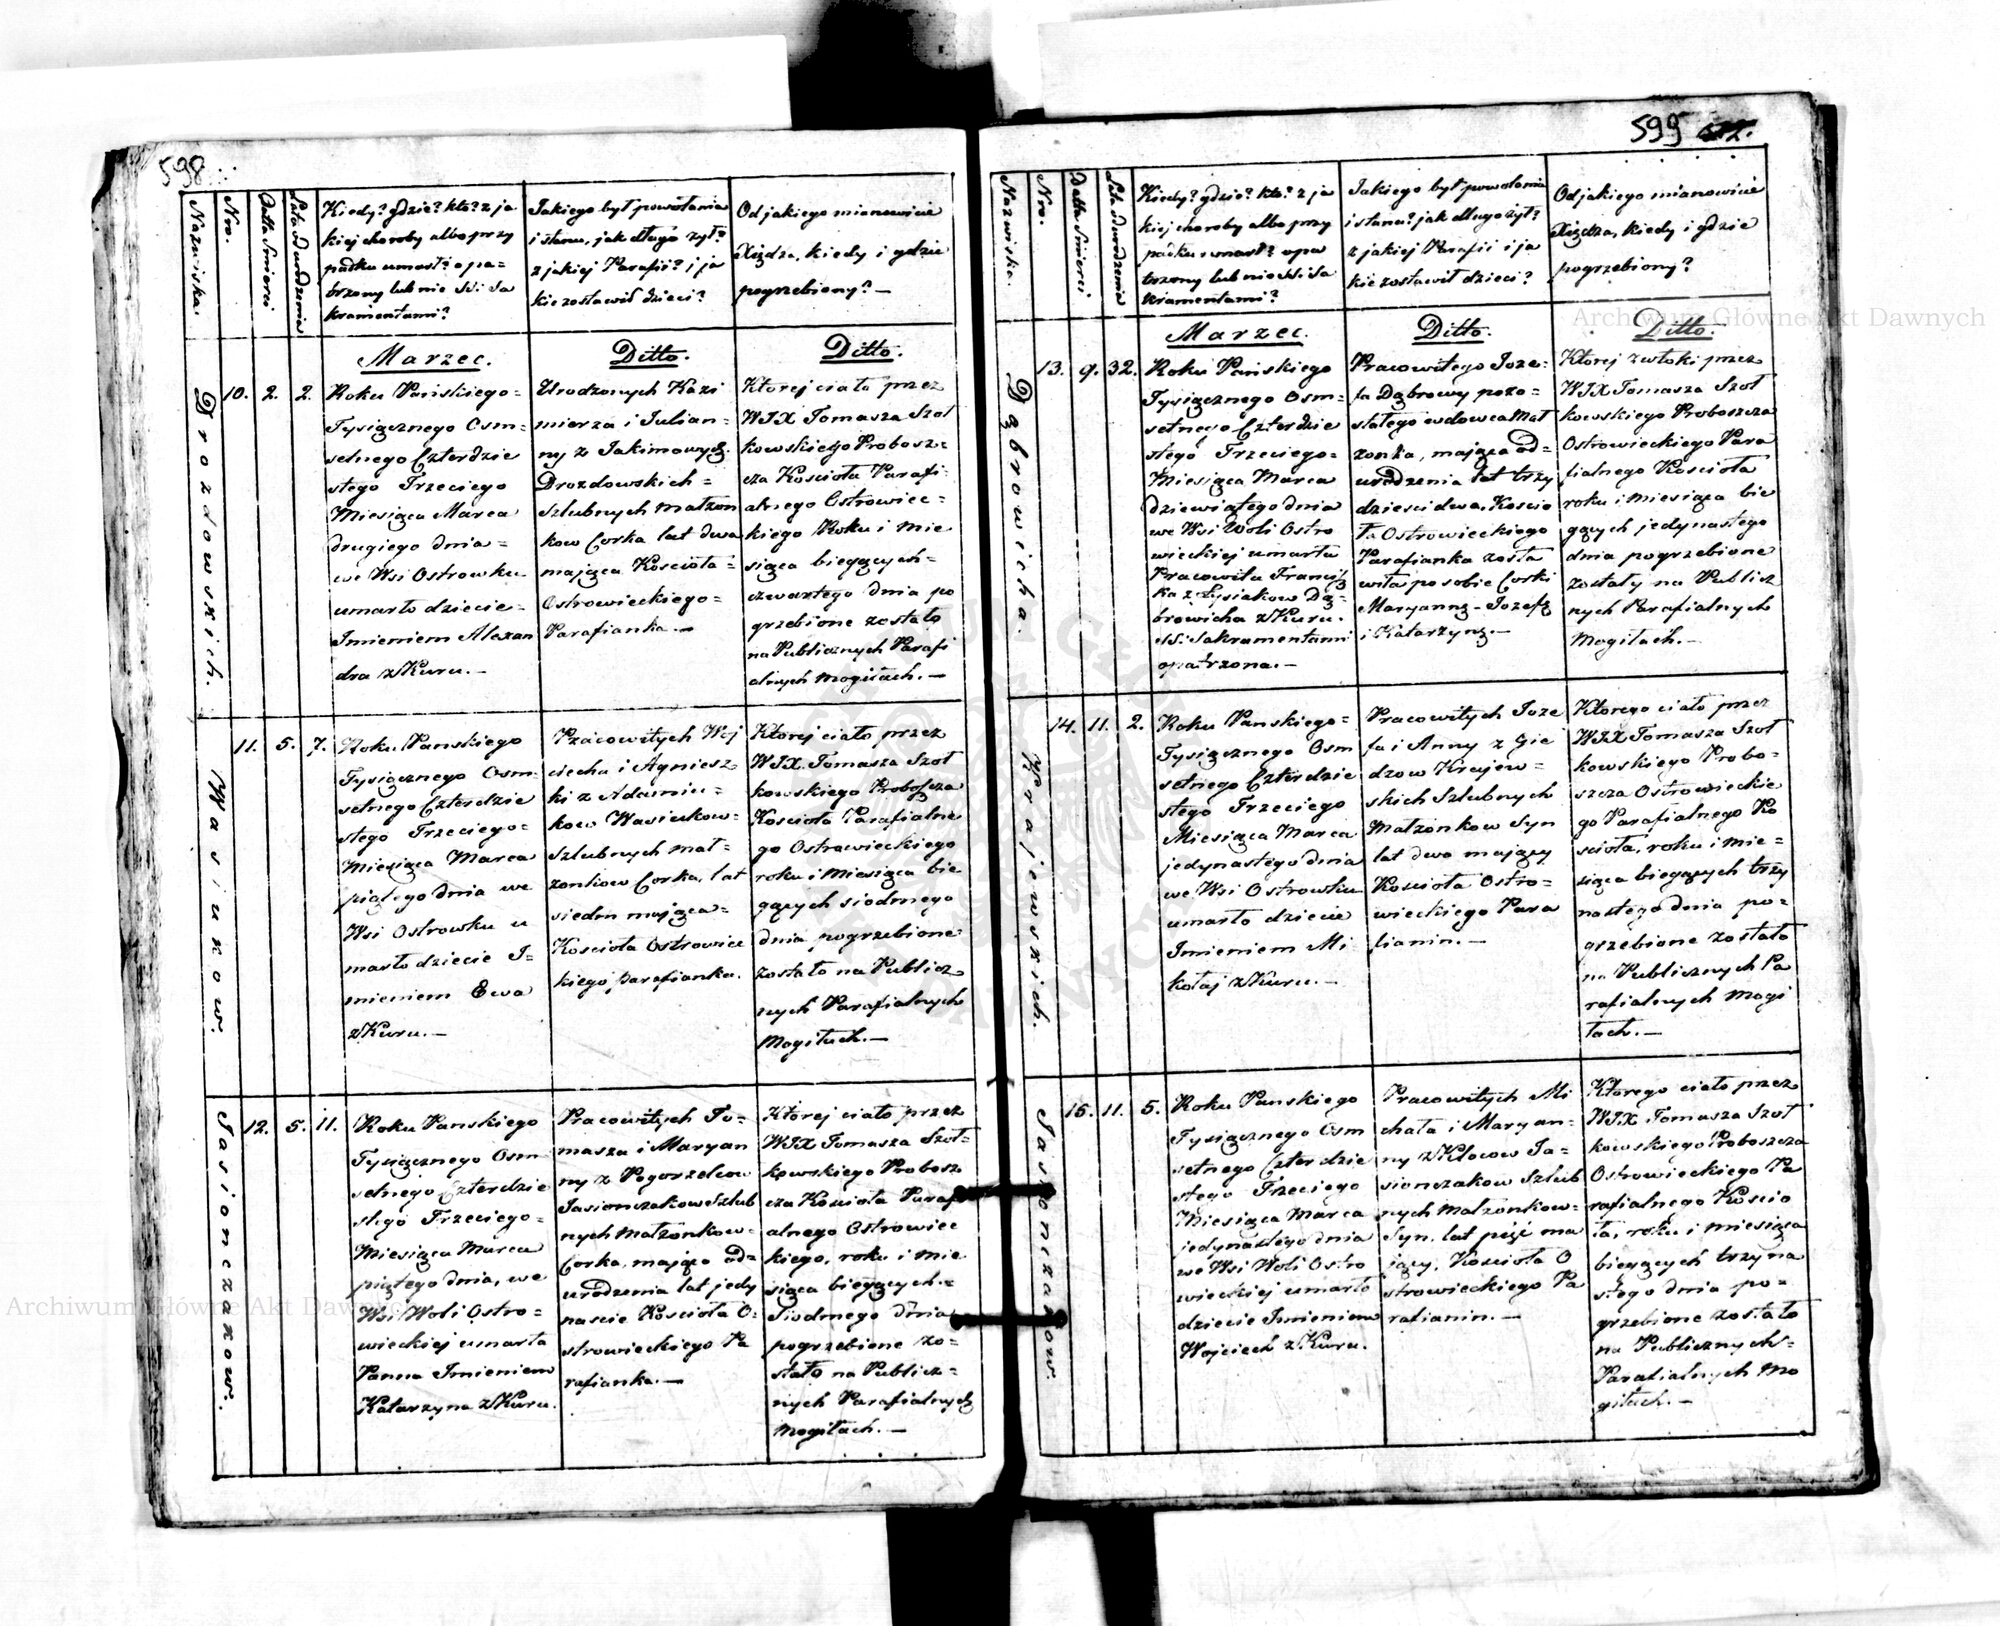 598
Nazwiska.
Nro.
Datta Smierci
Lata od urodzenia
Kiedy? gdzie? kto? z ja
kiej choroby albo przy
padku umarł? opa=
trzony lub nie SSi Sa
kramentami?
Jakiego był powołania
i stanu, jak długo żył?
z jakiej Parafii? i ja
kie zostawił dzieci?
Od jakiego mianowicie
Xiędza, kiedy i gdzie
pogrzebiony? —
Marzec.
Ditto.
Ditto.
Drozdowskich.
10.
2.
2.
Roku Pańskiego=
Tysiącznego Osm=
setnego Czterdzie
stego Trzeciego
Miesiąca Marca
drugiego dnia=
we Wsi Ostrowku
umarło dziecie=
Imieniem Alexan
dra z Kuru. —
Urodzonych Kazi
mierza i Julian=
ny z Jakimowycz.
Drozdowskich=
Szlubnych Małżon
kow Corka lat dwa
mająca Kościoła=
Ostrowieckiego=
Parafianka. —
Ktorej ciało przez
WJX Tomasza Szoł
kowskiego Probosz=
cza Kościoła Parafi=
alnego Ostrowiec=
kiego Roku i Mie
siąca bieżących=
czwartego dnia po
grzebione zostało
na Publicznych Parafi
alnych Mogiłach. —
Wasiukow.
11.
5.
7.
Roku Panskiego
Tysiącznego Osm=
setnego Czterdzie
stego Trzeciego=
Miesiąca Marca
piątego dnia we
Wsi Ostrowku u
marło dziecie I=
mieniem Ewa
z Kuru. —
Pracowitych Woj
ciecha i Agniesz
ki z Adamiu=
kow Wasiukow=
Szlubnych Mał=
żonkow Corka, lat
siedm mająca=
Kościoła Ostrowiec
kiego Parafianka.
Ktorej ciało przez
WJX. Tomasza Szoł
kowskiego Proboszcza
Kościoła Parafialne
go Ostrowieckiego
roku i Miesiąca bie
gących siodmego
dnia pogrzebione
zostało na Publicz
nych Parafialnych
Mogiłach. —
Jasionczakow.
12.
5.
11.
Roku Panskiego
Tysiącznego Osm
setnego Czterdzie
stego Trzeciego=
Miesiąca Marca
piątego dnia, we
Wsi Woli Ostro=
wieckiej umarła
Panna Imieniem
Katarzyna z Kuru.
Pracowitych To=
masza i Maryan
ny z Pogorzelcow
Jasionczakow Szlub
nych Małżonkow=
Corka, mająca od=
urodzenia lat jedy
nascie Kościoła O=
strowieckiego Pa
rafianka. —
Ktorej ciało przez
WJX Tomasza Szoł=
kowskiego Probosz
cza Kościoła Parafi
alnego Ostrowiec
kiego, roku i Mie
siąca bieżących=
Siodmego dnia
pogrzebione zo=
stało na Publicz=
nych Parafialnych
Mogiłach. —
599
Nazwiska.
Nro.
Datta Smierci
Lata od urodzenia
Kiedy? gdzie? kto? z ja
kiej choroby albo przy
padku umarł? opa
trzony lub nie SSi Sa
kramentami?
Jakiego był powołania
i stanu? jak długo żył?
z jakiej Parafii i ja
kie zostawił dzieci?
Od jakiego mianowicie
Xiędza, kiedy i gdzie
pogrzebiony?
Marzec.
Ditto.
Ditto.
Dąbrowicha.
13.
9.
32.
Roku Pańskiego
Tysiącznego Osm=
setnego Czterdzie
stego Trzeciego=
Miesiąca Marca
dziewiątego dnia
we Wsi Woli Ostro
wieckiej umarła
Pracowita Francisz
ka z Łysiakow Dą=
browicha z Kuru.
SSi: Sakramentami
opatrzona. —
Pracowitego Joze=
fa Dąbrowy pozo=
stałego wdowca Mał
żonka, mająca od=
urodzenia lat trzy
dziesci dwa, Koscio
ła Ostrowieckiego
Parafianka zosta
wiła po sobie Corki
Maryannę - Jozefę
i Katarzynę. —
Ktorej zwłoki przez
WJX Tomasza Szoł
kowskiego Proboszcza
Ostrowieckiego Para
fialnego Kościoła
roku i miesiąca bie
gących jedynastego
dnia pogrzebione
zostały na Publicz
nych Parafialnych
Mogiłach. —
Krajewskich.
14.
11.
2.
Roku Panskiego=
Tysiącznego Osm
setnego Czterdzie
stego Trzeciego
Miesiąca Marca
jedynastego dnia
we Wsi Ostrowku
umarło dziecie
Imieniem Mi
kołaj z Kuru. —
Pracowitych Joze
fa i Anny z Gie
dzow Krajew=
skich Szlubnych
Małżonkow Syn
lat dwa mający
Kościoła Ostro=
wieckiego Para
fianin. —
Ktorego ciało przez
WJX Tomasza Szoł
kowskiego Probo=
szcza Ostrowieckie
go Parafialnego Ko
scioła, roku i mie=
siąca biegących trzy
nastego dnia po=
grzebione zostało
na Publicznych Pa
rafialnych Mogi
łach. —
Jasionczakow.
15.
11.
5.
Roku Panskiego
Tysiącznego Osm
setnego Czterdzie
stego Trzeciego
Miesiąca Marca
jedynastego dnia
we Wsi Woli Ostro
wieckiej umarło
dziecie Imieniem
Wojciech z Kuru.
Pracowitych Mi
chała i Maryan=
ny z Kłocow Ja=
sionczakow Szlub
nych Małżonkow=
Syn, lat pięć ma
jący, Kościoła O
strowieckiego Pa
rafianin. —
Ktorego ciało przez
WJX Tomasza Szoł
kowskiego Proboszcza
Ostrowieckiego Pa
rafialnego Koscio
ła, roku i miesiąca
bieżących trzyna
stego dnia po=
grzebione zostało
na Publicznych=
Parafialnych Mo
giłach. —
Archiwum Główne Akt Dawnych
Archiwum Główne Akt Dawnych